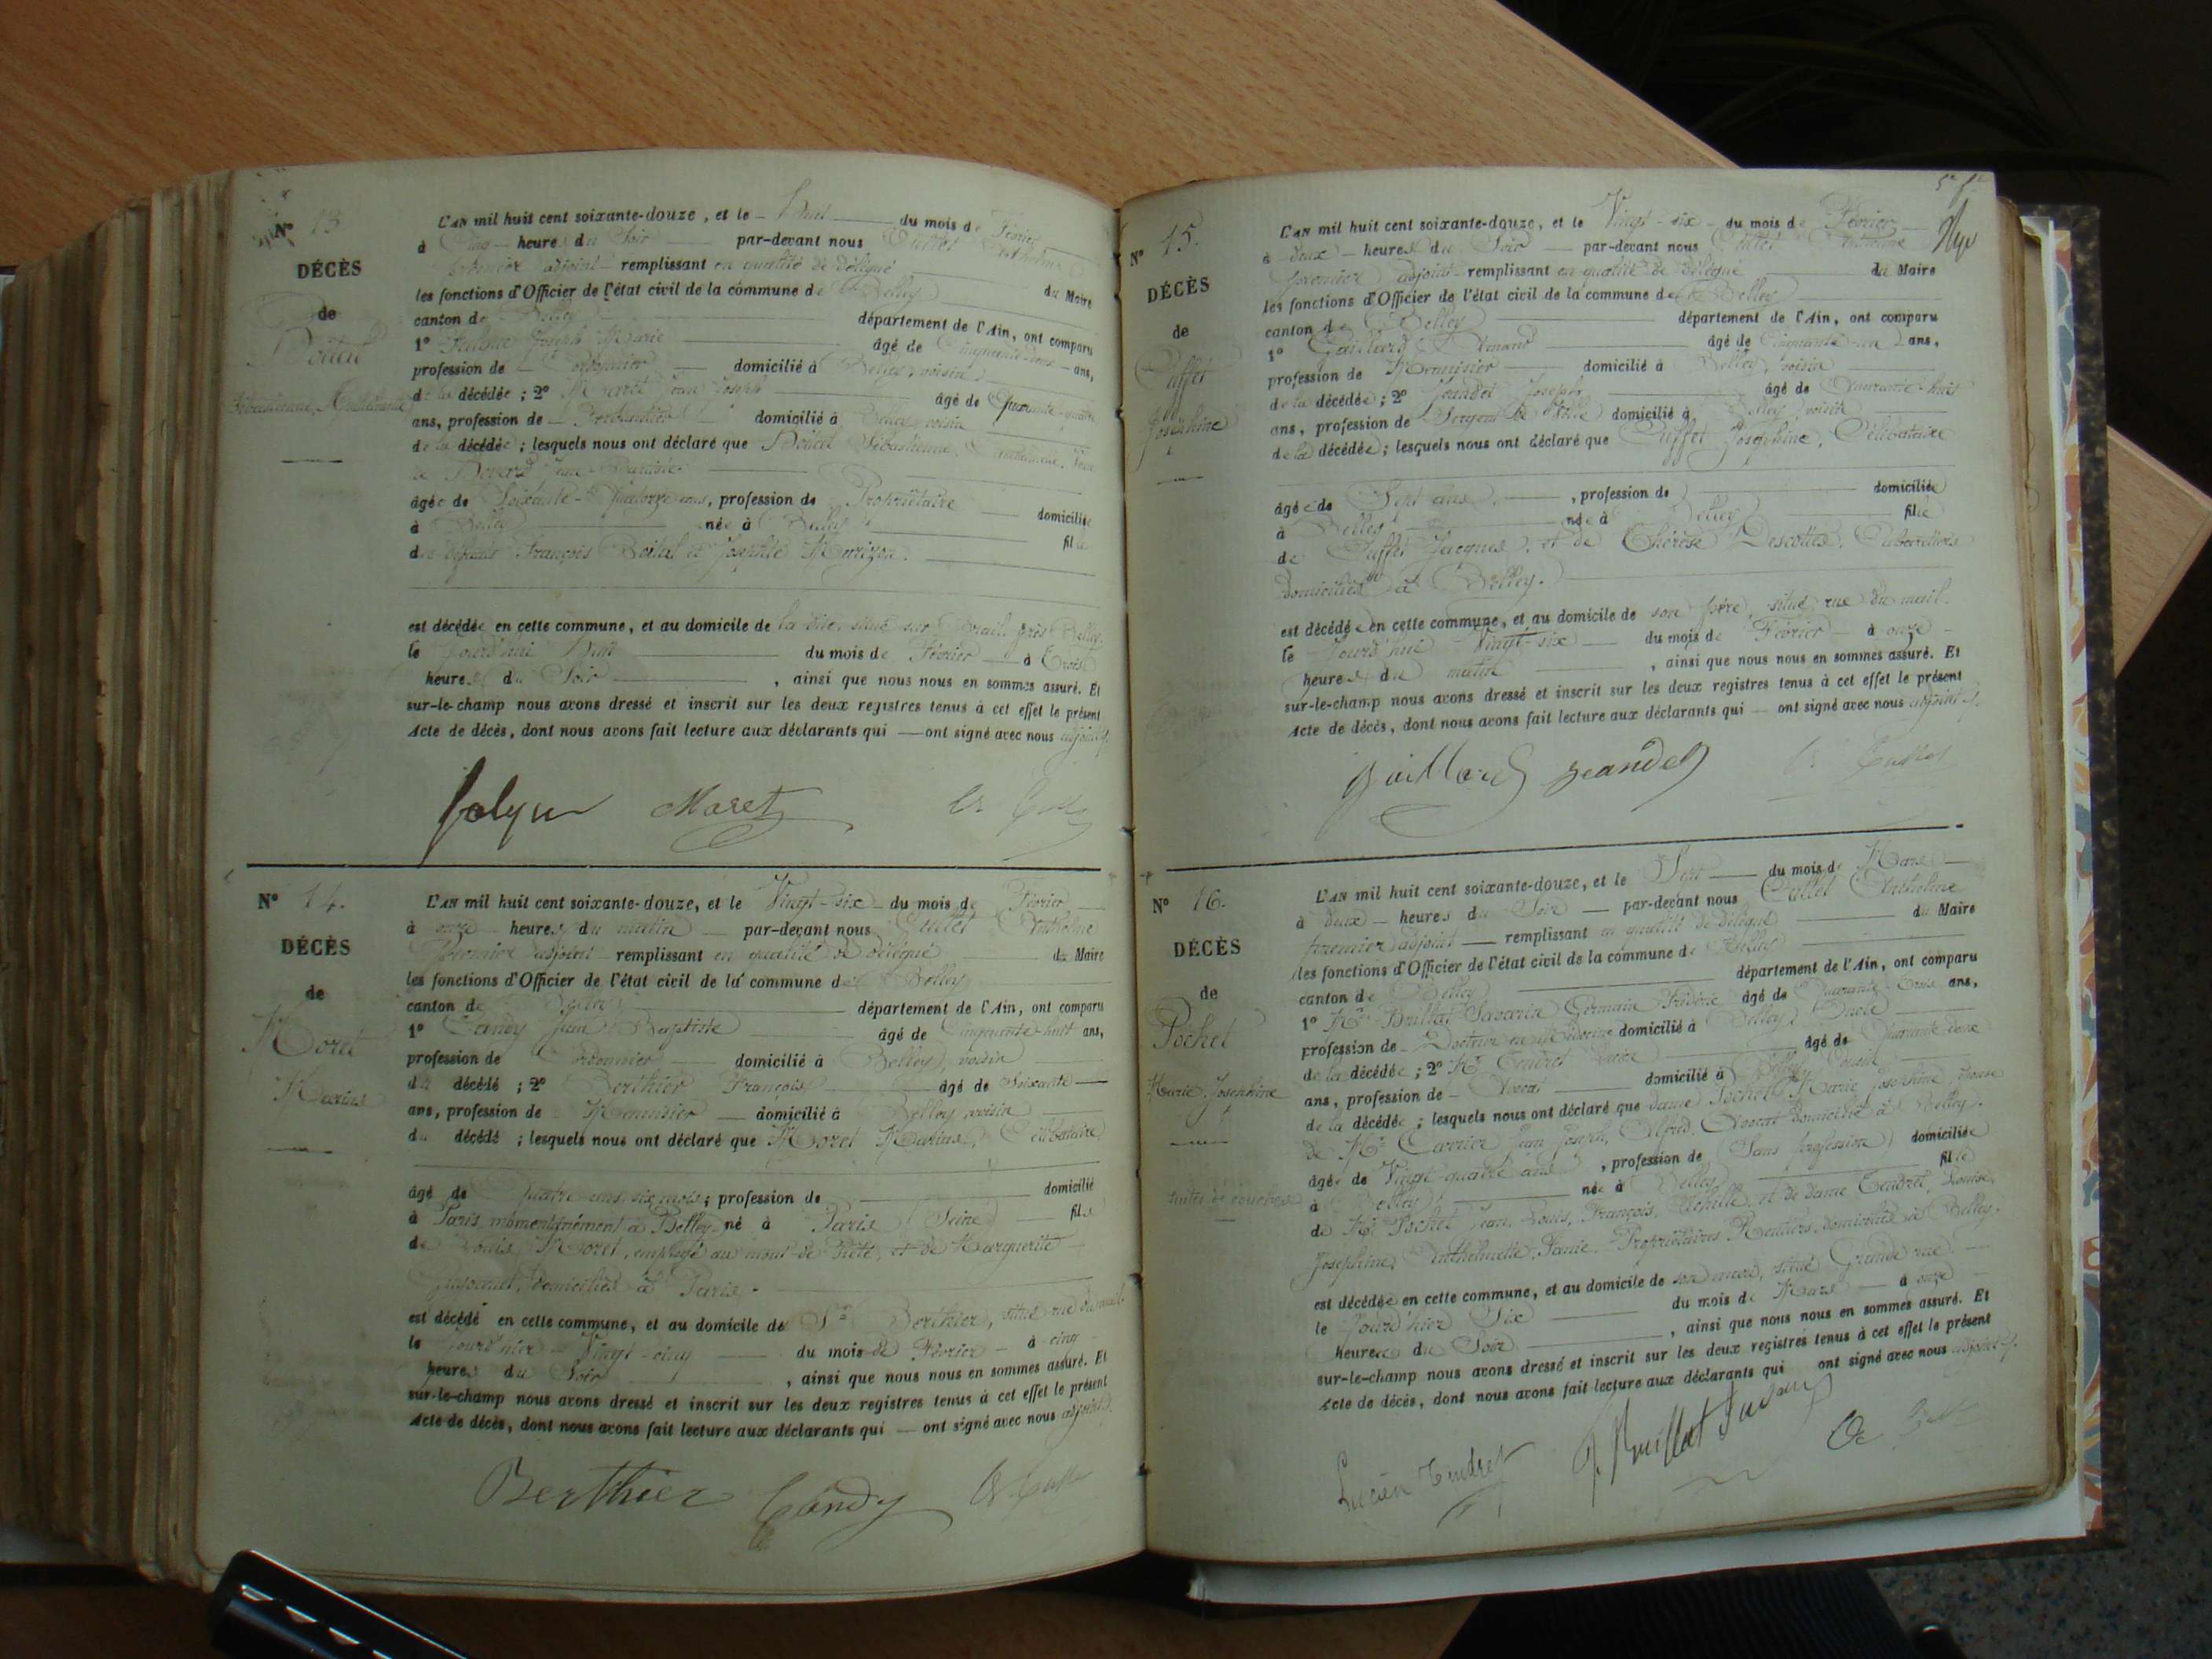 N° 13
DÉCÈS
de
Boital
L'AN mil huit cent soixante-douze, et le Huit du mois de Février
à Cinq heures du Soir par-devant nous Cullet Anthelme
premier adjoint remplissant en qualité de délégué
du Maire
les fonctions d'Officier de l'état civil de la commune de Belley
canton de Belley département de l'Ain, ont comparu
1° Joseph Marie âgé de Cinquante ans,
profession de Cordonnier domicilié à Belley, voisin
de la décédée ; 2° Jean Joseph âgé de Quarante-quatre
ans, profession de Ferblantier domicilié à Belley, voisin
de la décédée ; lesquels nous ont déclaré que Boital Sébastienne, Anthelmette, Veuve
de Jean-Baptiste
âgée de Soixante-Quatorze ans, profession de Propriétaire domiciliée
à Belley née à Belley fille
des défunts François Boital et Josephte
est décédée en cette commune, et au domicile de la dite, situé sur Mail, près Belley
le Jourd'hui Huit du mois de Février à Trois
heures du Soir , ainsi que nous nous en sommes assuré. Et
sur-le-champ nous avons dressé et inscrit sur les deux registres tenus à cet effet le présent
Acte de décès, dont nous avons fait lecture aux déclarants qui — ont signé avec nous adjoint
Maret
N° 14.
DÉCÈS
de
Moret
Marius
L'AN mil huit cent soixante-douze, et le Vingt-six du mois de Février
à onze heures du matin par-devant nous Cullet Anthelme
Premier adjoint remplissant en qualité de délégué du Maire
les fonctions d'Officier de l'état civil de la commune de Belley
canton de Belley département de l'Ain, ont comparu
1° Candy Jean Baptiste âgé de Cinquante-huit ans,
profession de Cordonnier domicilié à Belley, voisin
du décédé ; 2° Berthier François âgé de Soixante
ans, profession de Menuisier domicilié à Belley, voisin
du décédé ; lesquels nous ont déclaré que Moret Marius, Célibataire,
âgé de quatre ans six mois ; profession de domicilié
à Paris, momentanément à Belley né à Paris (Seine) fils
de Louis Moret, employé au mont de Piété, et de Marguerite
domiciliés à Paris.
est décédé en cette commune, et au domicile de Sr Berthier, situé rue du mail
le Jourd'hier Vingt-cinq du mois de Février à cinq
heures du Soir , ainsi que nous nous en sommes assuré. Et
sur-le-champ nous avons dressé et inscrit sur les deux registres tenus à cet effet le présent
Acte de décès, dont nous avons fait lecture aux déclarants qui — ont signé avec nous adjoint
Berthier Candy
N° 15.
DÉCÈS
de
Puffet
Joséphine
L'AN mil huit cent soixante-douze, et le Vingt-six du mois de Février
à deux heures du Soir par-devant nous Cullet Anthelme
premier adjoint remplissant en qualité de délégué du Maire
les fonctions d'Officier de l'état civil de la commune de Belley
canton de Belley département de l'Ain, ont comparu
1° Gaillard âgé de Cinquante-un ans,
profession de Menuisier domicilié à Belley, voisin
de la décédée ; 2° Jeandet Joseph âgé de Quarante-huit
ans, profession de Sergent de Ville domicilié à Belley, voisin
de la décédée ; lesquels nous ont déclaré que Puffet Joséphine, Célibataire
âgée de Sept ans , profession de domiciliée
à Belley née à Belley fille
de Puffet Jacques, et de Thérèse Descottes, Cabaretiers
domiciliés à Belley.
est décédée en cette commune, et au domicile de son père, situé rue du mail.
le Jourd'hui Vingt-six du mois de Février à onze
heures du matin , ainsi que nous nous en sommes assuré. Et
sur-le-champ nous avons dressé et inscrit sur les deux registres tenus à cet effet le présent
Acte de décès, dont nous avons fait lecture aux déclarants qui — ont signé avec nous adjoint
Gaillard Jeandet
N° 16.
DÉCÈS
de
Pochet
Marie, Joséphine
suites de couches
L'AN mil huit cent soixante-douze, et le Sept du mois de Mars
à deux heures du Soir par-devant nous Cullet Anthelme
premier adjoint remplissant en qualité de délégué du Maire
les fonctions d'Officier de l'état civil de la commune de Belley
canton de Belley département de l'Ain, ont comparu
1° Mr Brillat Savarin Germain Frédéric âgé de Quarante-Trois ans,
profession de Docteur en Médecine domicilié à Belley, Oncle
de la décédée ; 2° Mr Tendret Lucien âgé de Quarante-deux
ans, profession de Avocat domicilié à Belley, Cousin
de la décédée ; lesquels nous ont déclaré que dame Pochet Marie Joséphine, épouse
de Mr Carrier Jean Joseph, Alfred, Avocat domicilié à Belley.
âgée de Vingt-quatre ans , profession de (Sans profession) domiciliée
à Belley née à Belley fille
de Mr Pochet Jean, Louis, François, Achille, et de dame Tendret, Louise,
Joséphine, Anthelmette, Fanie, Propriétaires Rentiers, domiciliés à Belley.
est décédée en cette commune, et au domicile de son mari, situé Grande rue
le Jourd'hier Six du mois de Mars à onze
heures du Soir , ainsi que nous nous en sommes assuré. Et
sur-le-champ nous avons dressé et inscrit sur les deux registres tenus à cet effet le présent
Acte de décès, dont nous avons fait lecture aux déclarants qui ont signé avec nous adjoint
Lucien Tendret F. Brillat Savarin